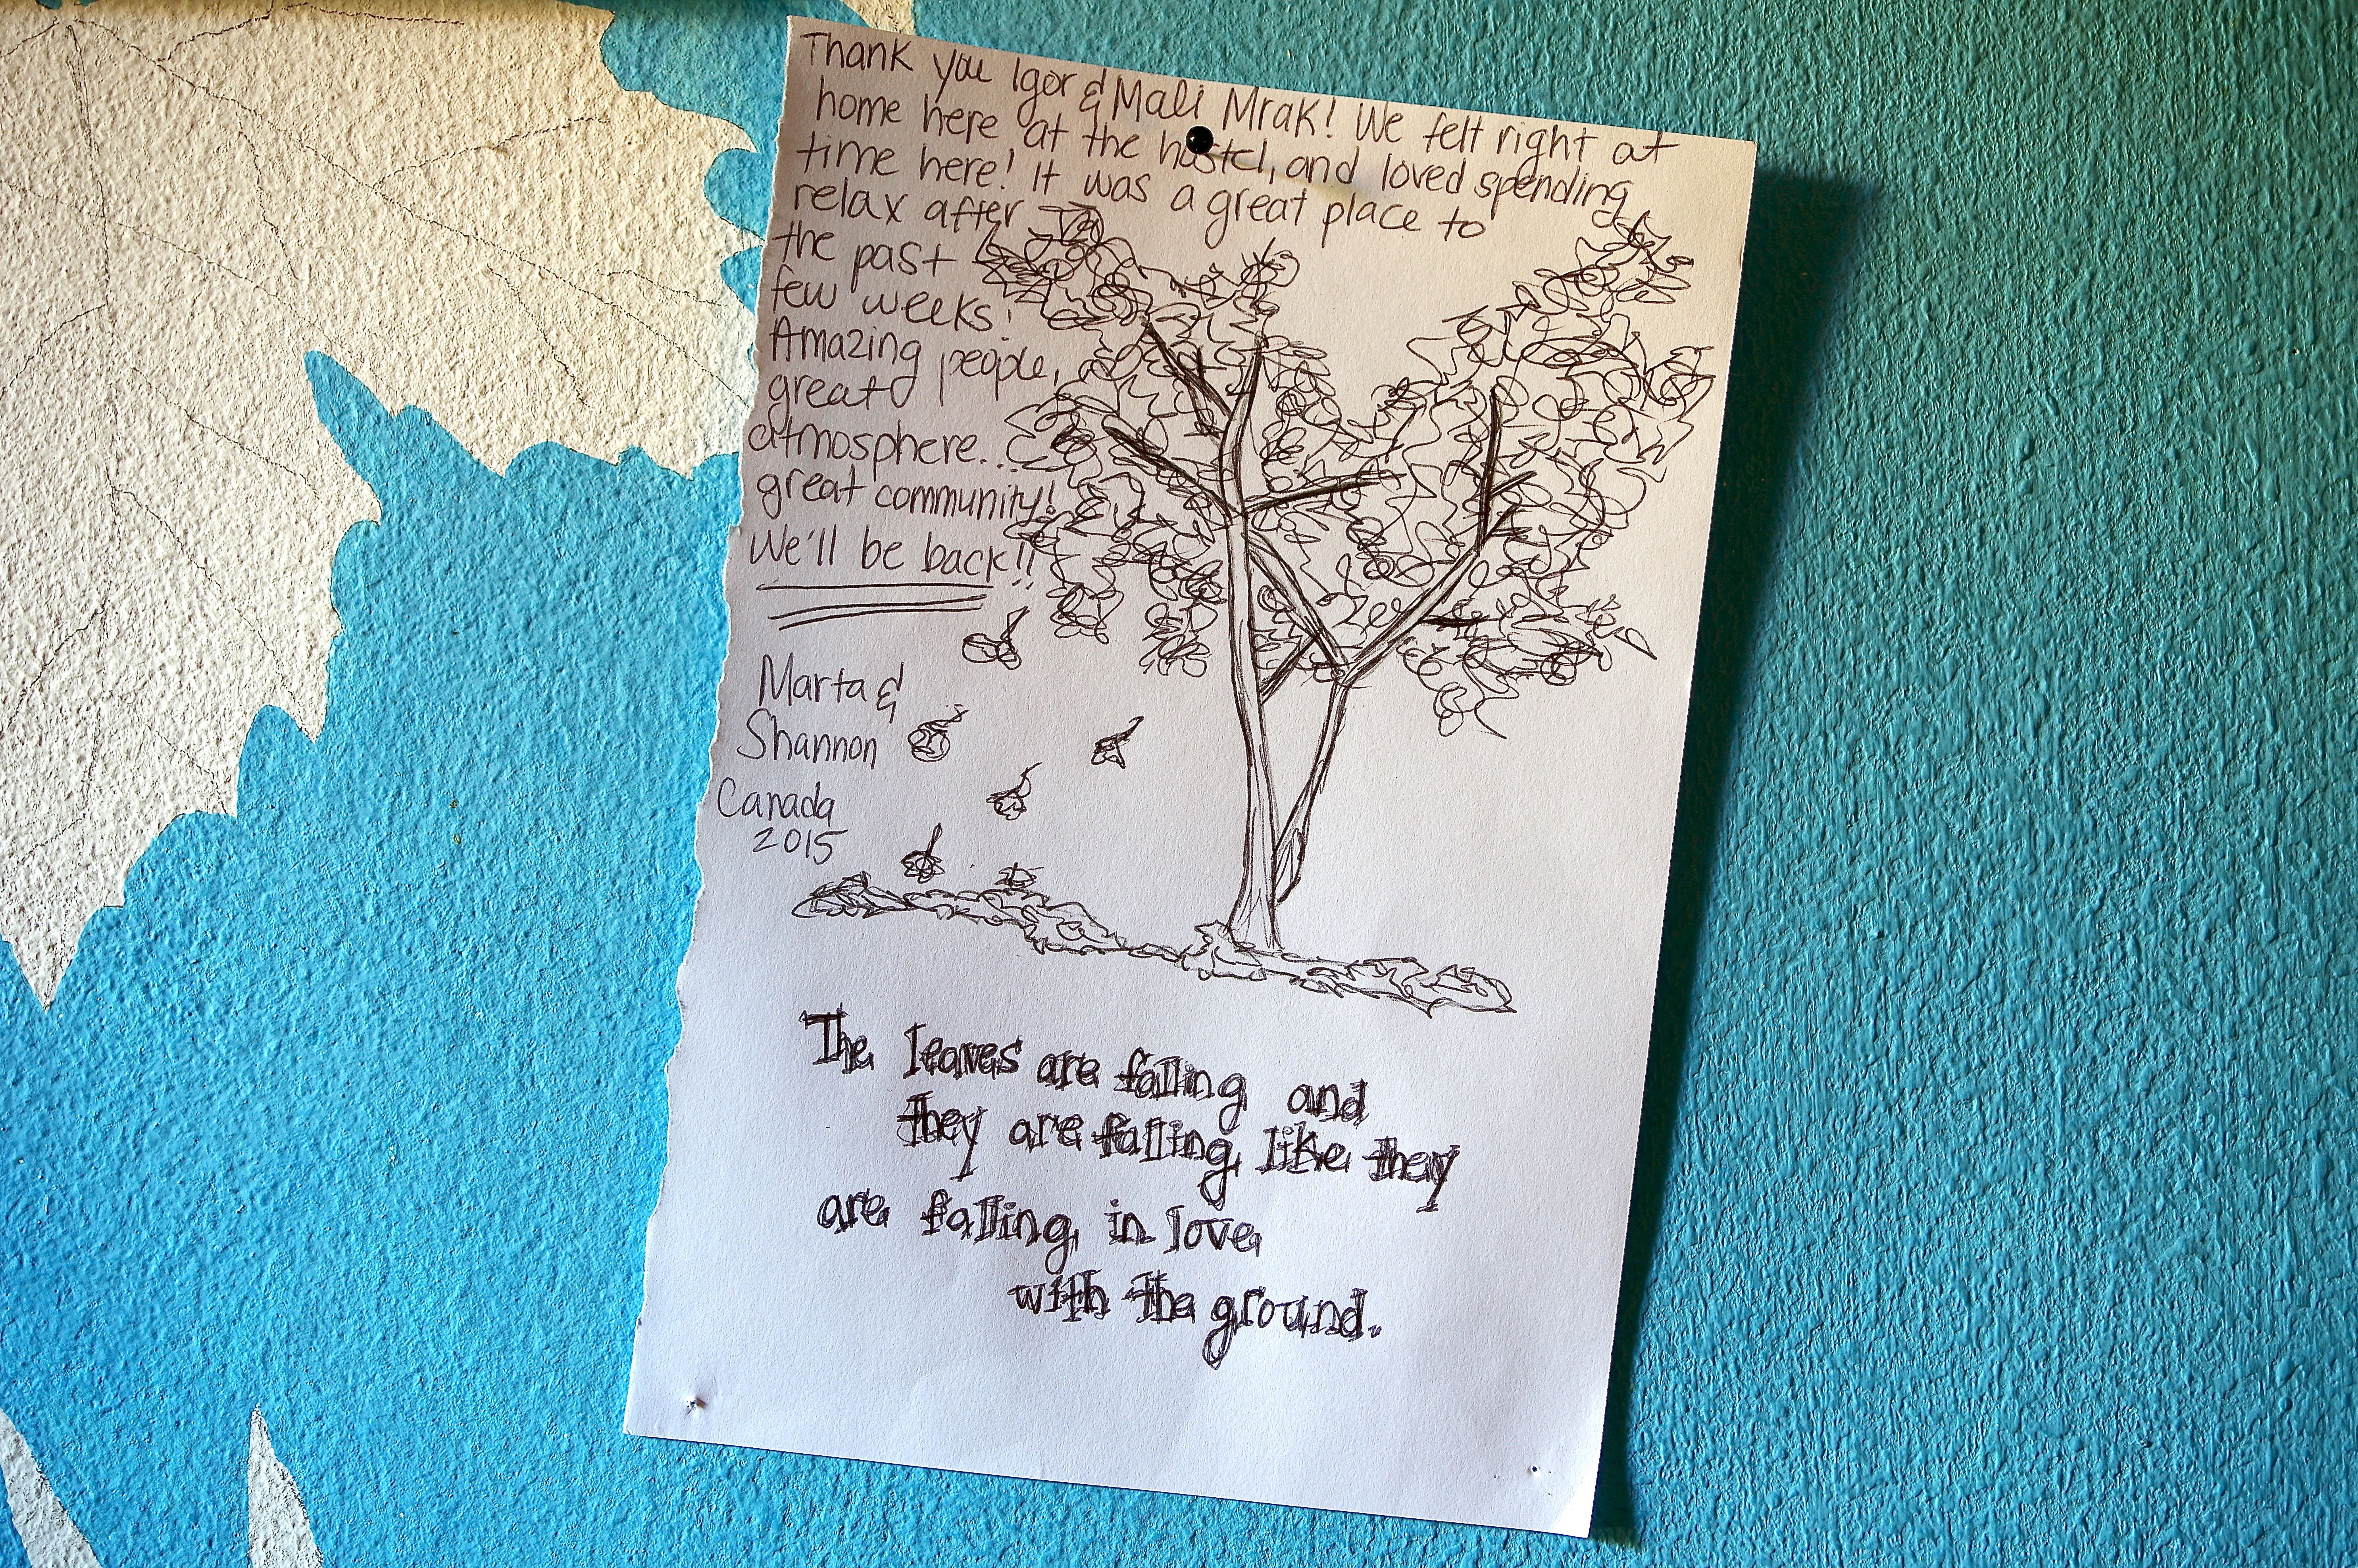 Thank you Igor & Mali Mrak! We felt right at
home here at the hostel, and loved spending
time here! It was a great place to
relax after
the past
few weeks!
Amazing people,
great
atmosphere...
great community!
We'll be back!!
Marta &
Shannon
Canada
2015
The leaves are falling and
they are falling like they
are falling in love
with the ground.